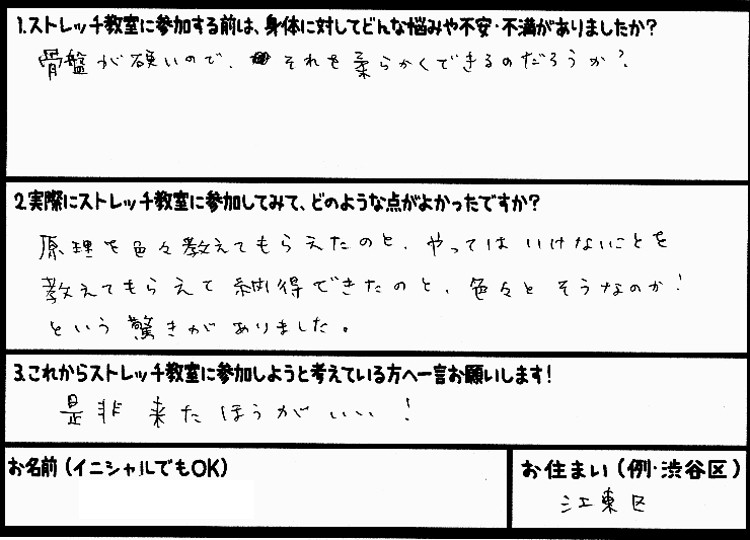 1.ストレッチ教室に参加する前は、身体に対してどんな悩みや不安・不満がありましたか?
骨盤が硬いので、それを柔らかくできるのだろうか?
2.実際にストレッチ教室に参加してみて、どのような点がよかったですか?
原理を色々教えてもらえたのと、やってはいけないことを
教えてもらえて納得できたのと、色々とそうなのか!
という驚きがありました。
3.これからストレッチ教室に参加しようと考えている方へ一言お願いします!
是非来たほうがいい!
お名前(イニシャルでもOK)
お住まい(例・渋谷区)
江東区